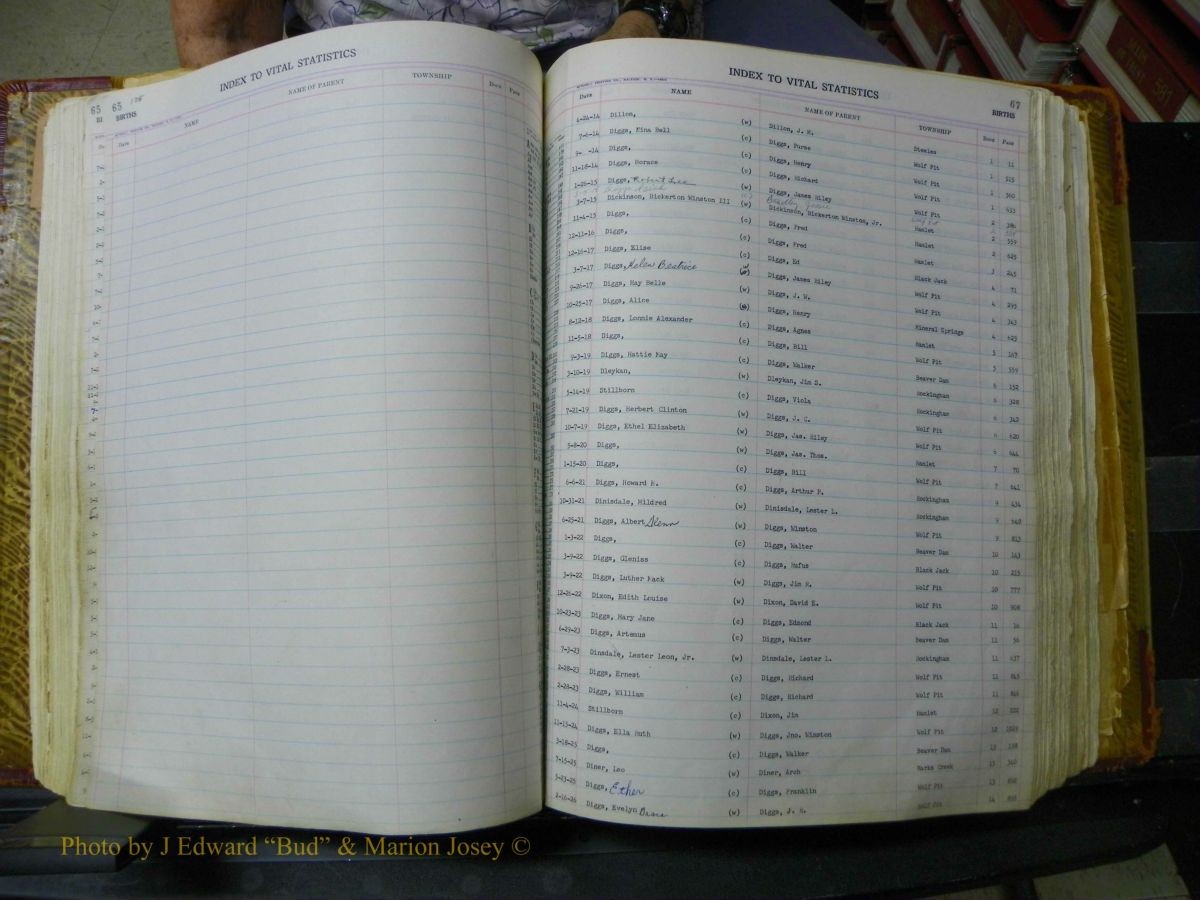 INDEX TO VITAL STATISTICS
65 65
BIRTHS
Date NAME NAME OF PARENT TOWNSHIP Book Page
INDEX TO VITAL STATISTICS
67
BIRTHS
Date NAME NAME OF PARENT TOWNSHIP Book Page
4-24-14 Dillon, (w) Dillon, J. H. Steeles 1 11
7-6-14 Diggs, Kina Bell (c) Diggs, Purse Wolf Pit 1 515
9- -14 Diggs, (c) Diggs, Henry Wolf Pit 1 560
11-16-14 Diggs, Horace (c) Diggs, Richard Wolf Pit 1 633
1-28-15 Diggs, Robert Lee (w) Diggs, James Riley Wolf Pit 2
3-7-15 Dickinson, Bickerton Winston III (w) Dickinson, Bickerton Winston, Jr. Hamlet 2
11-4-15 Diggs, (c) Diggs, Fred Hamlet 2 625
12-11-16 Diggs, (c) Diggs, Fred Hamlet 3 245
12-16-17 Diggs, Elise (c) Diggs, Ed Black Jack 4 71
3-7-17 Diggs, Helen Beatrice Diggs, James Riley Wolf Pit 4 295
9-26-17 Diggs, May Belle (w) Diggs, J. W. Wolf Pit 4 343
10-25-17 Diggs, Alice Diggs, Henry Mineral Springs 4 625
8-12-18 Diggs, Lonnie Alexander (c) Diggs, Agnes Hamlet 5 167
11-5-18 Diggs, (c) Diggs, Bill Wolf Pit 5 559
9-3-19 Diggs, Hattie May (c) Diggs, Walker Beaver Dam 6 152
3-10-19 Dleykan, (w) Dleykan, Jim S. Rockingham 6 328
5-14-19 Stillborn (c) Diggs, Viola Rockingham 6 342
7-21-19 Diggs, Herbert Clinton (w) Diggs, J. C. Wolf Pit 6 620
10-7-19 Diggs, Ethel Elizabeth (w) Diggs, Jas. Riley Wolf Pit 6 644
5-8-20 Diggs, (w) Diggs, Jas. Thos. Hamlet 7 70
1-15-20 Diggs, (c) Diggs, Bill Wolf Pit 7 641
6-6-21 Diggs, Howard R. (c) Diggs, Arthur P. Rockingham 9 434
10-31-21 Dinisdale, Mildred (w) Dinisdale, Lester L. Rockingham 9 540
6-25-21 Diggs, Albert Glenn (w) Diggs, Winston Wolf Pit 9 813
1-3-22 Diggs, (c) Diggs, Walter Beaver Dam 10 143
3-9-22 Diggs, Gleniss (c) Diggs, Rufus Black Jack 10 215
3-9-22 Diggs, Luther Mack (w) Diggs, Jim R. Wolf Pit 10 777
12-26-22 Dixon, Edith Louise (w) Dixon, David E. Wolf Pit 10 908
10-23-23 Diggs, Mary Jane (c) Diggs, Edmond Black Jack 11 16
6-29-23 Diggs, Artemus (c) Diggs, Walter Beaver Dam 11 56
7-3-23 Dinsdale, Lester Leon, Jr. (w) Dinsdale, Lester L. Rockingham 11 437
2-28-23 Diggs, Ernest (c) Diggs, Richard Wolf Pit 11 845
2-28-23 Diggs, William (c) Diggs, Richard Wolf Pit 11 846
11-4-24 Stillborn (c) Dixon, Jim Hamlet 12
11-15-24 Diggs, Ella Ruth (w) Diggs, Jno. Winston Wolf Pit 12
3-18-25 Diggs, (c) Diggs, Walker Beaver Dam 13
7-15-25 Diner, Leo (w) Diner, Arch Marks Creek 13 340
5-23-25 Diggs, Ether (c) Diggs, Franklin Wolf Pit 13
2-16-26 Diggs, Evelyn (w) Diggs, J. R. Wolf Pit 14
Photo by J Edward “Bud” & Marion Josey ©